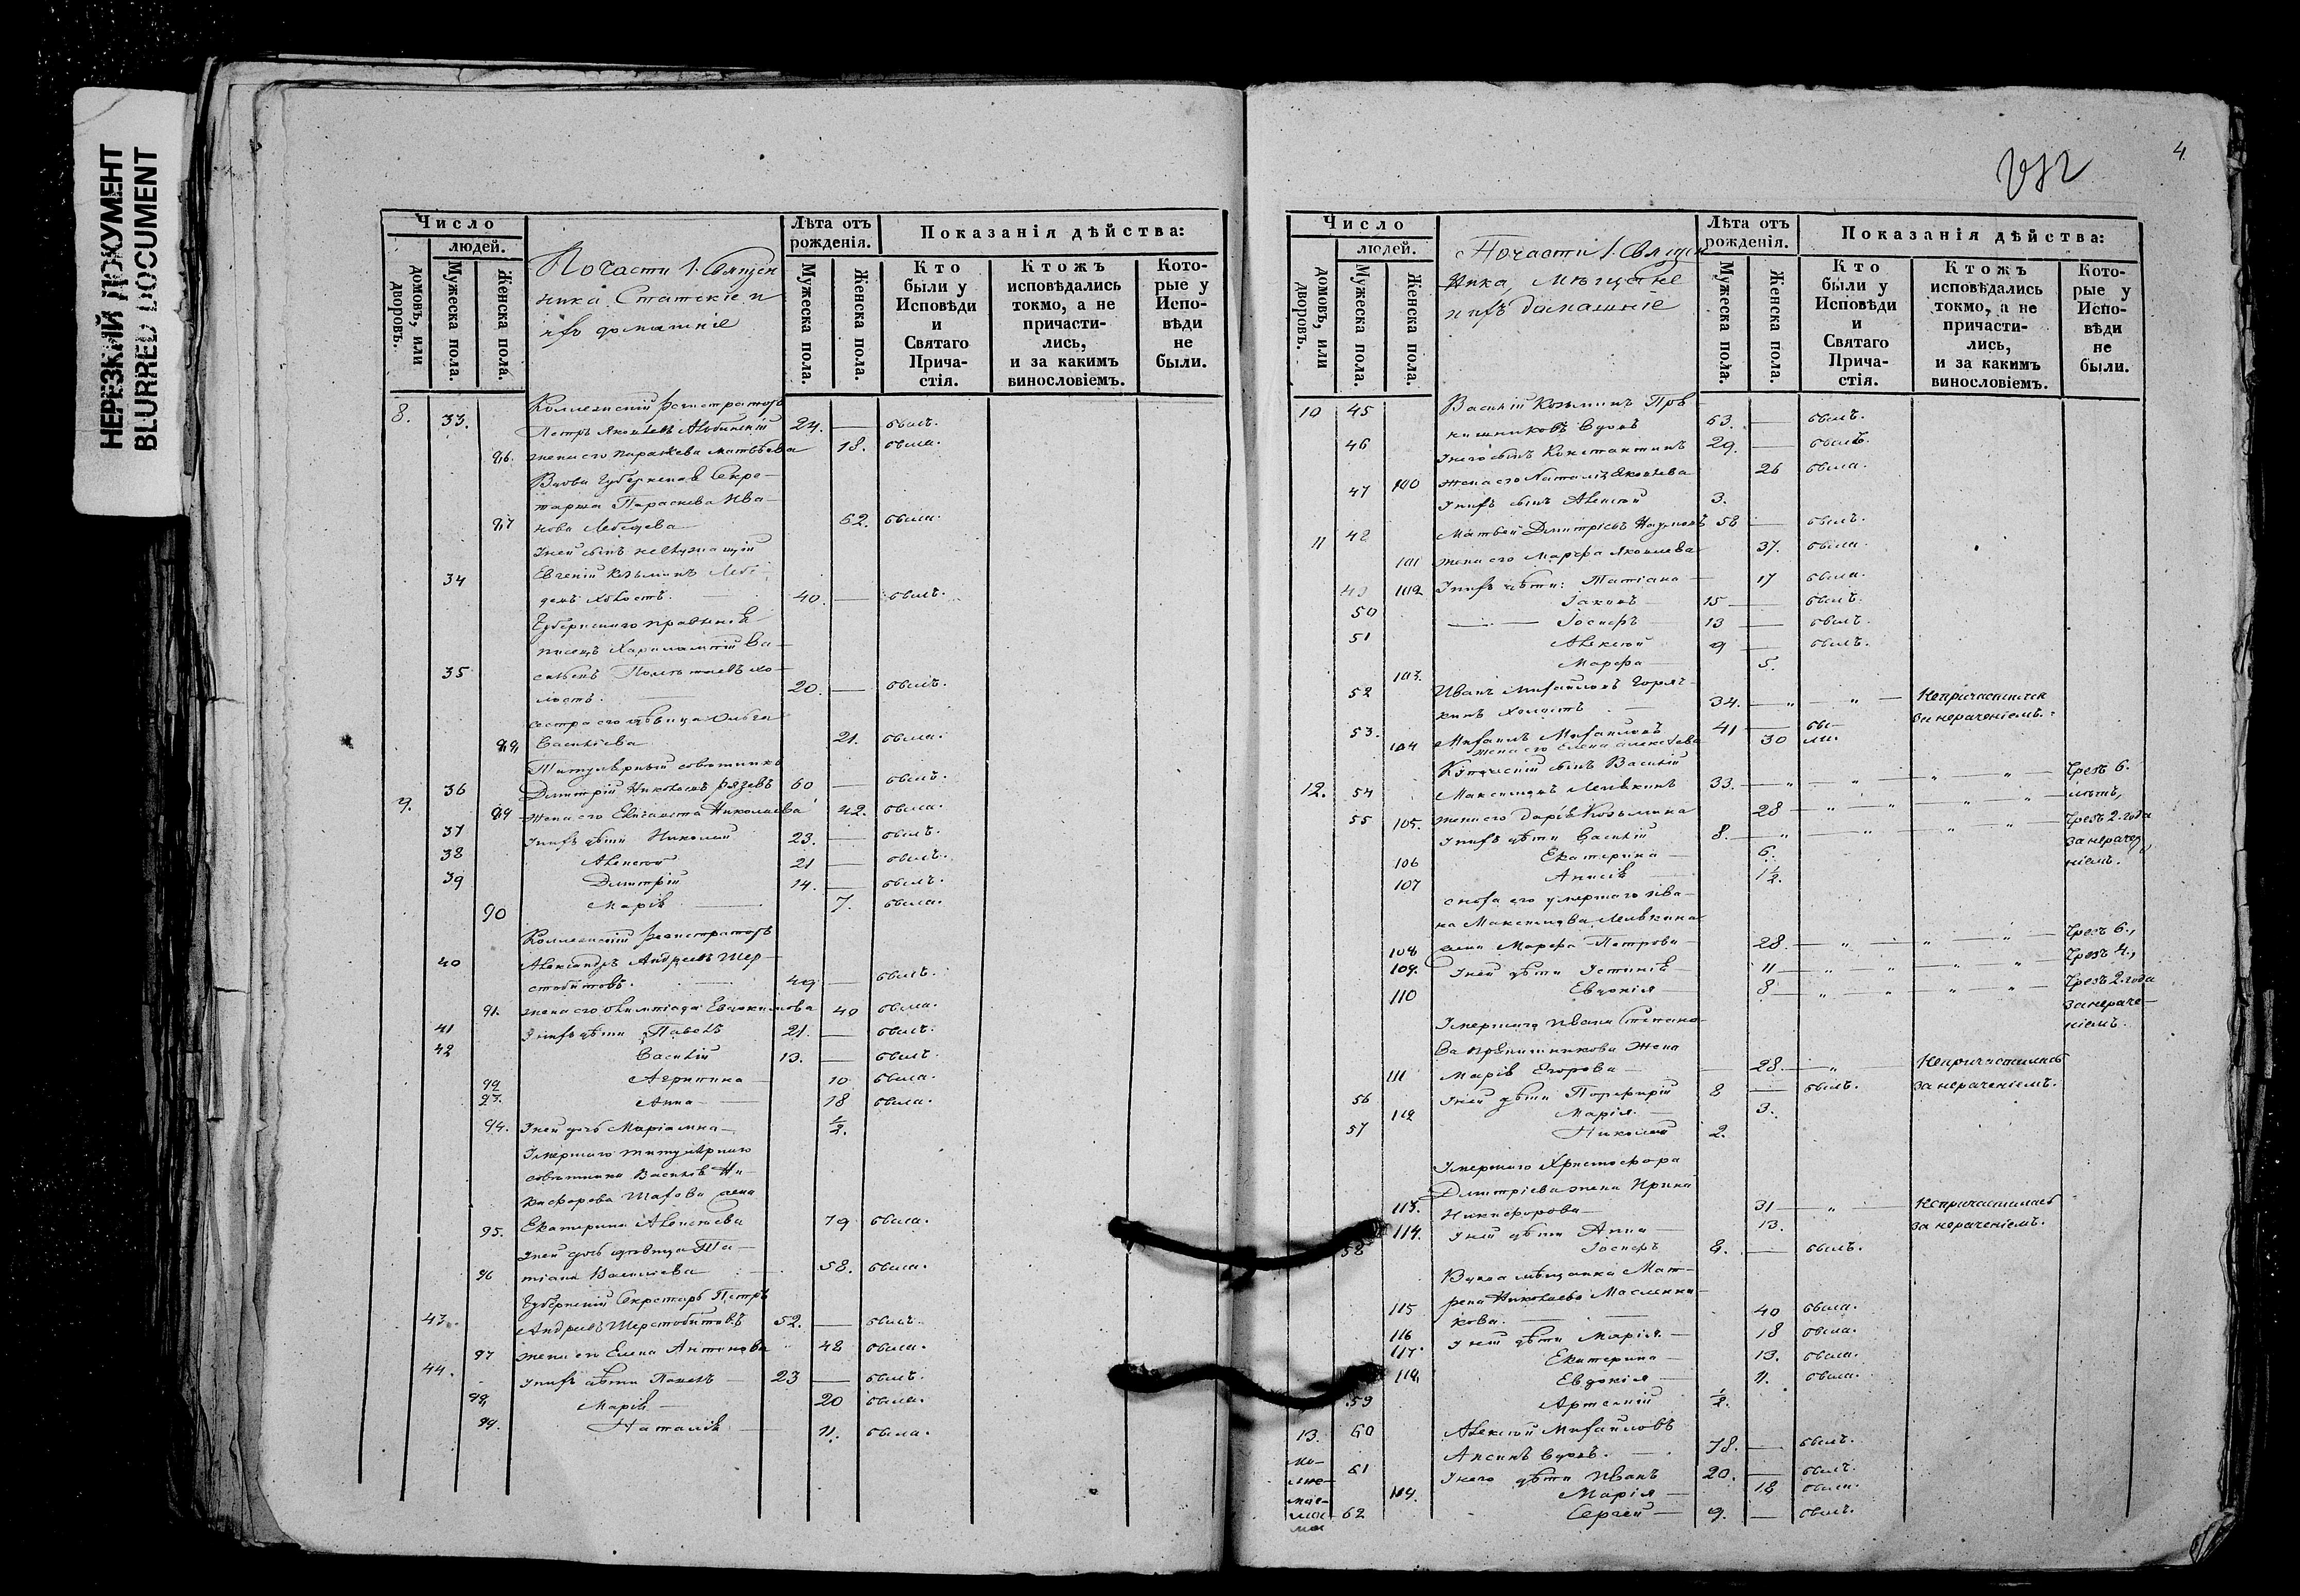 НЕРЕЗКИЙ ДОКУМЕНТ
BLURRED DOCUMENT
Число
людей.
домовъ, или дворовъ.
Мужеска пола.
Женска пола.
Почасти 1. Священ
ника Статскіе и
ихъ домашніе
Лѣта отъ рожденія.
Мужеска пола.
Женска пола.
Показанія дѣйства:
Кто были у Исповѣди и Святаго Прича- стія.
Ктожъ исповѣдались токмо, а не причасти- лись, и за какимъ винословіемъ.
Кото- рые у Испо- вѣди не были.
Коллежскій Регистраторъ
8. 33. Петръ Яковлевъ 24. — былъ.
86. жена его Параскева Матвѣева 18. была.
Вдова Губернская Секре-
тарша Параскева Ива-
87 нова Лебедева 62. была.
У ней сынъ неслужащій
34 Евгеній Козьминъ Лебе-
девъ холостъ. 40. — былъ.
Губернскаго правленія
писецъ Харлампій Ва-
35 сильевъ хо-
лостъ. 20. — былъ.
сестра его дѣвица Ольга
88 Васильева 21. была.
Титулярный совѣтникъ
9. 36 Дмитрій Николаевъ 60 — былъ.
89 жена его Елисавета Николаева 42. была.
37 У нихъ дѣти Николай 23. — былъ.
38 Алексѣй 21 — былъ.
39 Дмитрій 14. — былъ.
90 Марія — 7. была.
Коллежскій Регистраторъ
40 Александръ Андреевъ Шер-
стобитовъ. 49 — былъ.
91. жена его Олимпіада Евдокимова 40 была.
41 У нихъ дѣти Павелъ 21. — былъ.
42 Василій 13. — былъ.
92 Агрипина — 10 была.
93. Анна — 18 была.
94. У ней дочь Маріамна — ½.
Умершаго титулярнаго
совѣтника Василья Ни-
кифорова жена
95. Екатерина Алексѣева 79 была.
У ней дочь дѣвица Та-
96 тіана Васильева 58. была.
Губернскій Секретарь Петръ
43. Андреевъ Шерстобитовъ 52. — былъ.
97 жена его Елена Антонова 48 была.
44. У нихъ дѣти Павелъ — 23 — былъ.
98 Марія — 20 была.
99. Наталія — 11. была.
4.
Число
людей.
домовъ, или дворовъ.
Мужеска пола.
Женска пола.
Почасти 1. Священ
ника, Мѣщане
и ихъ домашніе
Лѣта отъ рожденія.
Мужеска пола.
Женска пола.
Показанія дѣйства:
Кто были у Исповѣди и Святаго Прича- стія.
Ктожъ исповѣдались токмо, а не причасти- лись, и за какимъ винословіемъ.
Кото- рые у Испо- вѣди не были.
10 45 Василій Козьминъ Пря-
нишниковъ вдовъ 63. — былъ.
46 У него сынъ Константинъ 29. — былъ.
100 жена его Наталія Яковлева 26 была.
47 У нихъ сынъ Алексѣй 3.
11 48 Матвѣй Дмитріевъ Наумовъ 58 — былъ.
101 жена его Марфа Яковлева 37. была.
49 102 У нихъ дѣти: Татіана — 17 была.
Іаковъ — 15 — былъ.
50 Іосифъ 13 — былъ.
51 Алексѣй 9 — былъ.
103. Марфа 5.
52 Иванъ Михайловъ Горяч-
кинъ Холостъ — 34. — Непричастился
за нераченіемъ.
53. Михаилъ Михайловъ 41 — бы-
104 жена его Елена Алексѣева 30 ли.
Купеческій сынъ Василій
12. 54 Максимовъ 33. — Чрезъ 6.
лѣтъ,
105. жена его Дарія Козьмина 28
55 У нихъ дѣти Василій 8. — Чрезъ 2. года
106 Екатерина — 6. за нераче-
107 Анисія 1½. ніемъ.
сноха его умершаго Ива-
на Максимова
108 жена Марфа Петрова — 28. — Чрезъ 6.,
109. У ней дѣти Устинія — 11 — Чрезъ 4.,
110 Евдокія — 8 — Чрезъ 2. года
за нераче-
ніемъ.
Умершаго Ивана Степано-
ва Прянишникова жена
111 Марія Егорова — 28. — Непричастилась
56 У ней дѣти Порфирій 8 — былъ. за нераченіемъ.
112 Марія. — 3.
57 Николай 2.
Умершаго Христофора
Дмитріева жена Ирина
113. Никифорова — 31 — Непричастилась
114. У ней дѣти Анна — 13. за нераченіемъ.
58 Іосифъ 8. — былъ.
Вдова мѣщанка Мат-
115 рена Николаева Маслени-
кова. 40 была.
116 У ней дѣти Марія. — 18 была.
117. Екатерина — 13. была.
118 Евдокія — 11. была.
59 Артемій ½.
13. 60 Алексѣй Михайловъ
вдовъ. 78. — былъ.
61 У него дѣти Иванъ 20. — былъ.
119. Марія — 18 была.
62 Сергѣй — 9. — былъ.